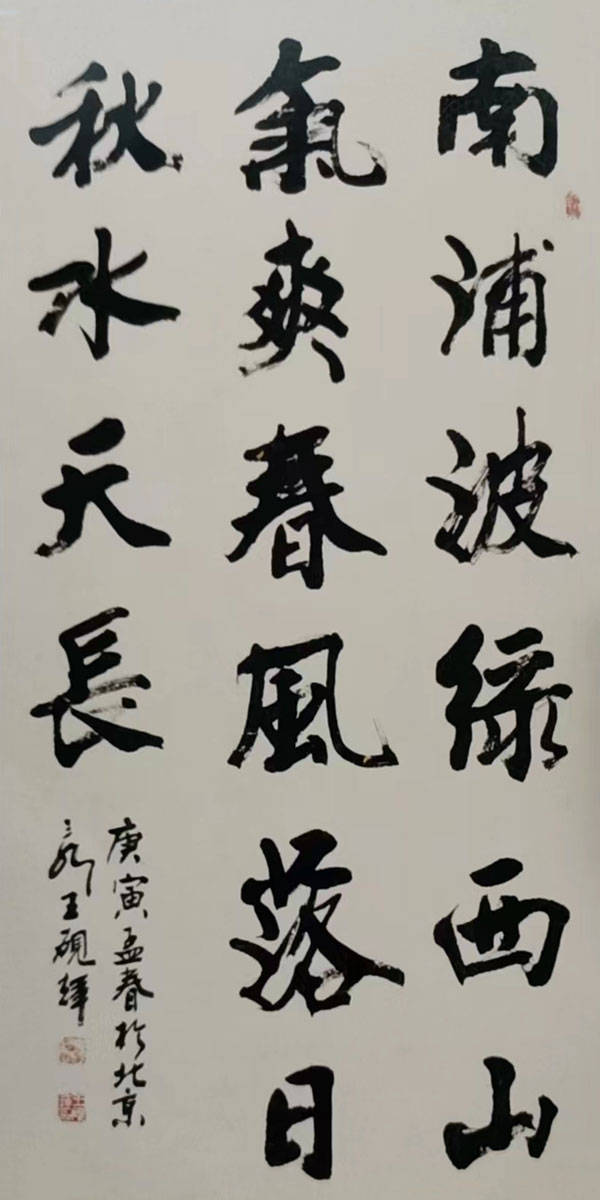 南浦波绿西山
氣爽春風落日
秋水天長
庚寅孟春於北京
王硯輝